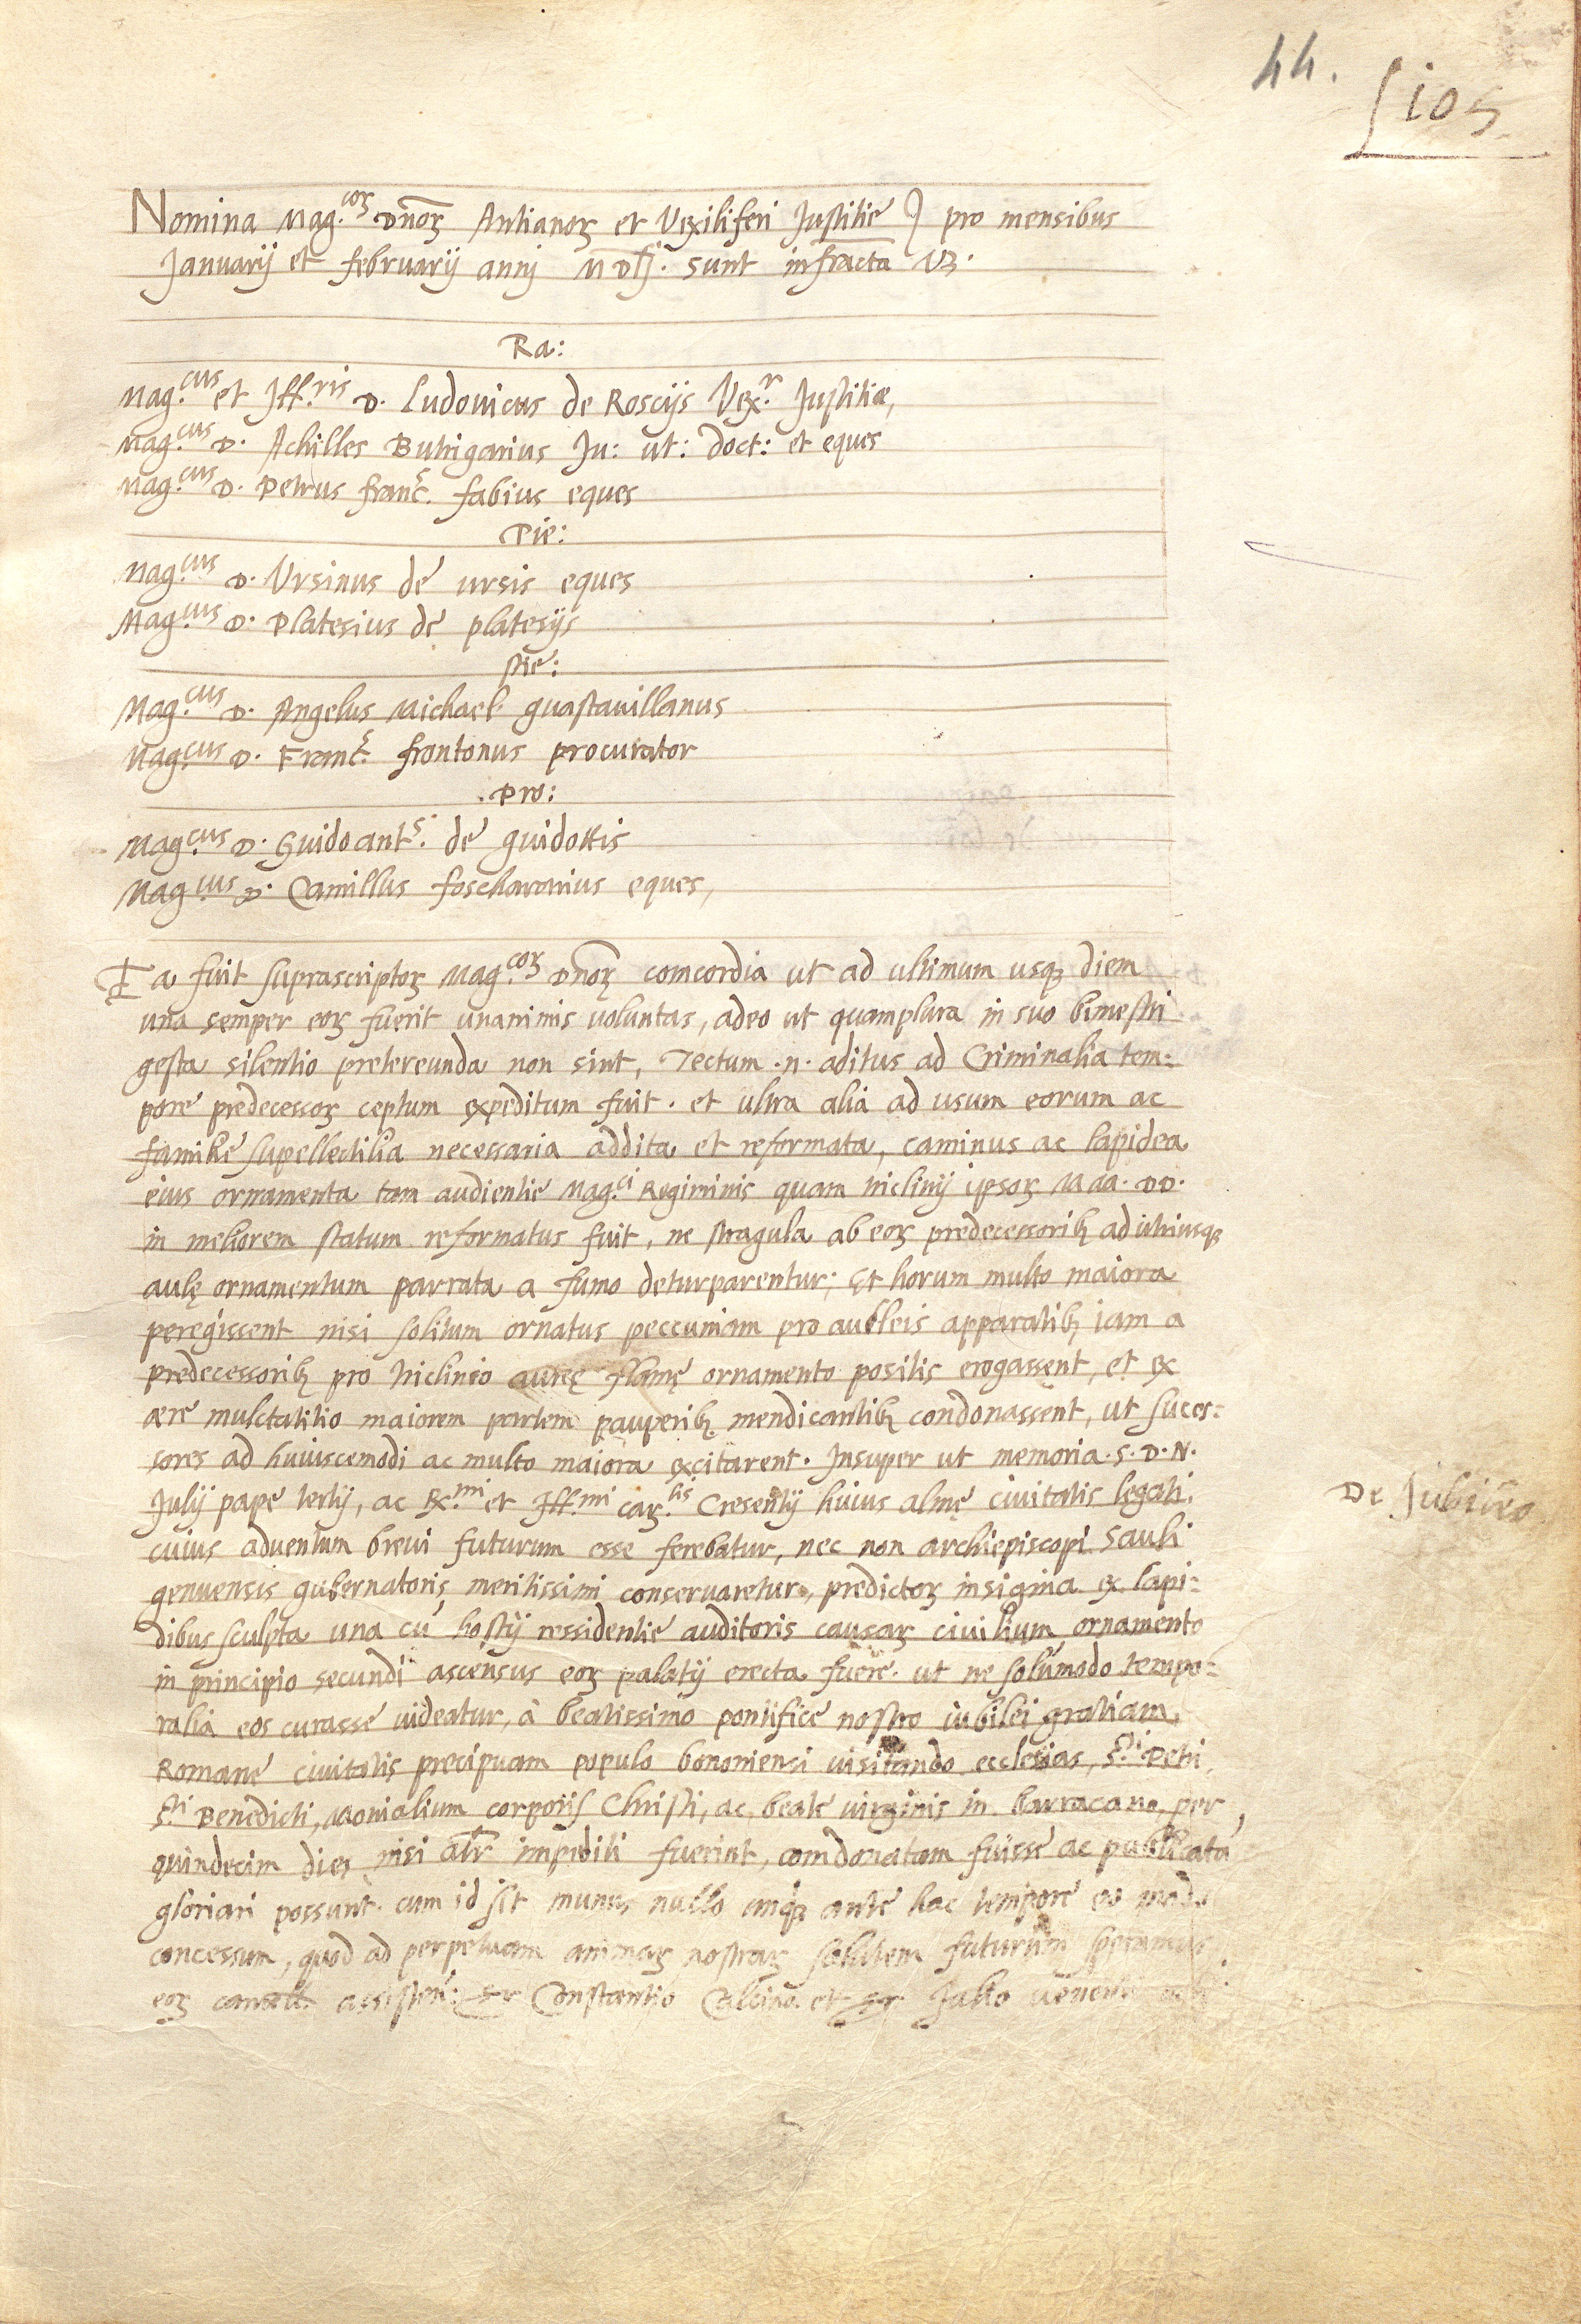 44.
105
Nomina Mag.coꝝ Dn̄oꝝ Antianoꝝ et Vexiliferi Justitie pro mensibus
Januarij et februarij annj MDLJ. sunt infracta Vꝫ.
Ra:
Mag.cus et Ill.ris D. Ludovicus de Roscijs Vex.r Justitiæ,
Mag.cus D. Achilles Butrigarius Ju: ut: doct: et eques
Mag.cus D. Petrus franc.s fabius eques
Pie:
Mag.cus D. Vrsinus de ursis eques
Mag.cus D. Platesius de platesijs
Ste:
Mag.cus D. Angelus Michael guastavillanus
Mag.cus D. Franc.s frontonus procurator
Pro:
Mag.cus D. Guidoant.s de guidottis
Mag.cus D. Camillus foschararius eques,
Ea fuit suprascriptoꝝ Mag.coꝝ Dnōꝝ comcordia ut ad ultimum usqꝫ diem
una semper eoꝝ fuerit unanimis voluntas, adeo ut quamplura in suo bimestri
gesta silentio pretereunda non sint, Tectum .n. aditus ad Criminalia tem:
pore predecessoꝝ ceptum expeditum fuit. et ultra alia ad usum eorum ac
familiẽ supellectilia necessaria addita et reformata, caminus ac lapidea
eius ornamenta tam audientie Mag.ci Regiminis quam triclinij ipsoꝝ MM. DD.
in meliorem statum reformatus fuit, ne stragula ab eoꝝ predecessoribꝫ ad utriusqꝫ
aulę ornamentum parrata a fumo deturparentur; Et horum multo maiora
peregissent nisi solitum ornatus peccuniam pro aulleis apparatibꝫ iam a
predecessoribꝫ pro triclinio aureę flamę ornamento positis erogassent, et ex
ære mulctatitio maiorem partem pauperibꝫ mendicantibꝫ condonassent, ut suces:
sores ad huiuscemodi ac multo maiora excitarent. Insuper ut memoria S. D. N.
Julij pape tertij, ac R.mi et Ill.mi Car.lis Cresentij huius almę civitatis legati,
cuius adventum brevi futurum esse ferebatur, nec non archiepiscopi Sauli
genuensis gubernatoris meritissimi conservaretur, predictoꝝ insignia ex lapi:
dibus sculpta una cū hostij ressidentie auditoris causaꝝ civilium ornamento
in principio secundi ascensus eoꝝ palatij erecta fuere. ut ne solūmodo tempo:
ralia eos curasse videatur, à beatissimo pontifice nostro iubilei gratiam
Romanẽ civitatis precipuam populo bononiensi visitando ecclesias, S.ti Petri,
S.ti Benedicti, Monialium corporis Christi, ac beate virginis in barracano, per
quindecim dies nisi alr̄ impediti fuerint, comdonatam fuisse ac publicatā
gloriari possunt. cum id sit munus nullo unqꝫ ante hac tempore eo modo
concessum, quod ad perpetuam animaꝝ nostraꝝ salutem futurum speramus
eoꝝ cancell. assisten: Sr Constantio Calcina et Sr Julio
De Jubileo